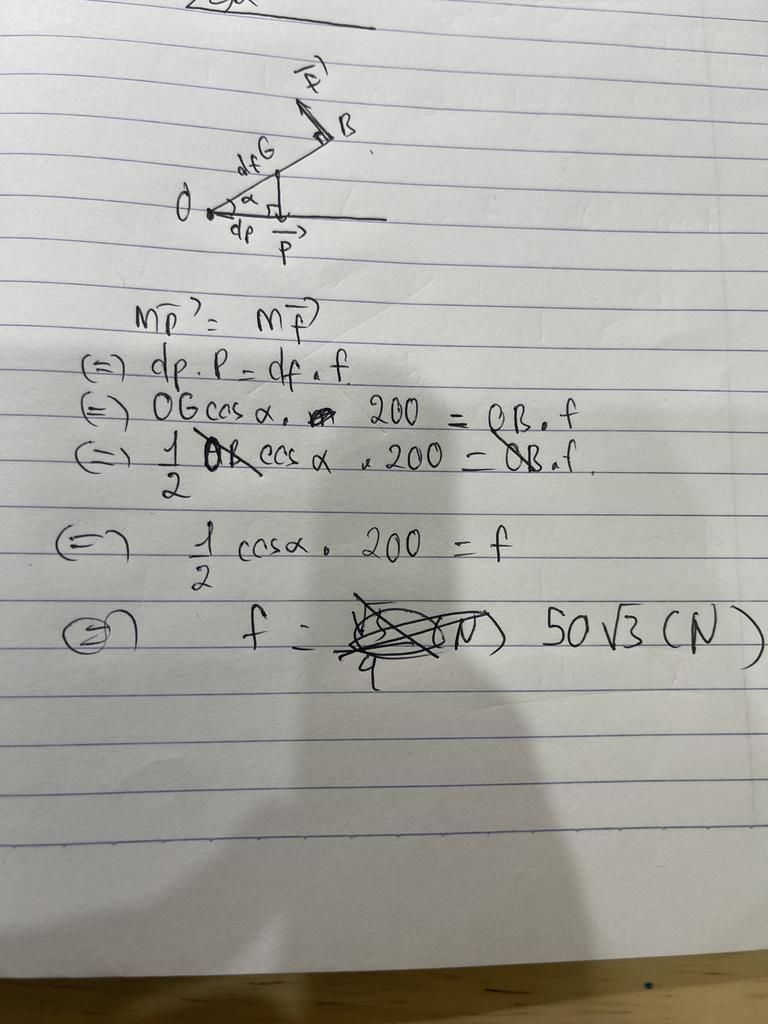 F
B
G
df
O
α
dp
P
MP = MF
(=) dp . P = df . f
(=) OG cos α . 200 = OB . f
(=) 1/2 OB cos α . 200 = OB . f
(=) 1/2 cos α . 200 = f
(=) f = (N) 50√3 (N)